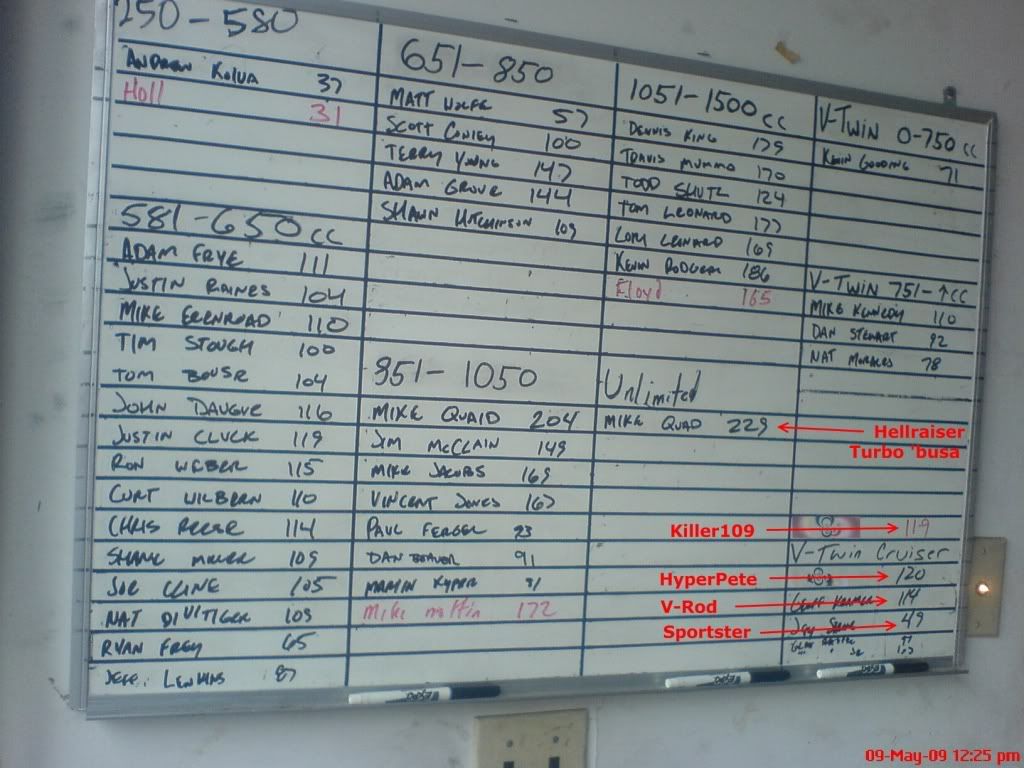 250-580
ANDREW KOLVA 37
Holl 31
581-650 CC
ADAM FRYE 111
JUSTIN RAINES 104
MIKE EBENROAD 110
TIM STOUGH 100
TOM 104
JOHN DAUGUE 116
JUSTIN CLUCK 119
RON WEBER 115
CURT WILBERN 110
CHRIS REESE 114
109
JOE CLINE 105
NAT DIVITIGER 109
RYAN FREY 65
JEFF JENKINS 87
651-850
MATT WOLFE 57
SCOTT CONLEY 100
TERRY YOUNG 147
ADAM GROVE 144
SHAWN HUTCHINSON 109
851-1050
MIKE QUAID 204
JIM McCLAIN 149
MIKE JACOBS 169
VINCENT JONES 167
PAUL 93
DAN BEAVER 91
91
Mike mottin 172
1051-1500 CC
DENNIS KING 179
TRAVIS MUMMO 170
TODD SHUTZ 124
TOM LEONARD 177
LEONARD 169
KEVIN 186
Floyd 165
Unlimited
MIKE QUAD 229
V-TWIN 0-750 CC
KEVIN GOODING 71
V-TWIN 751-↑CC
MIKE KENNEDY 110
DAN STEWART 92
NAT MORALES 78
Hellraiser
Turbo 'busa
Killer109 119
V-Twin Cruiser
HyperPete 120
V-Rod 114
Sportster 49
09-May-09 12:25 pm